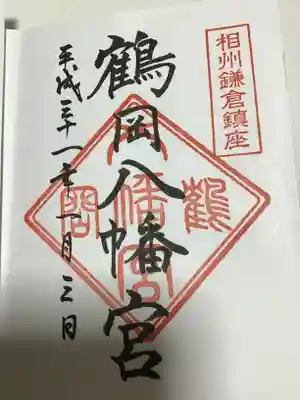 相州鎌倉鎮座
鶴岡八幡宮
鶴岡八幡宮
平成三十一年一月三日